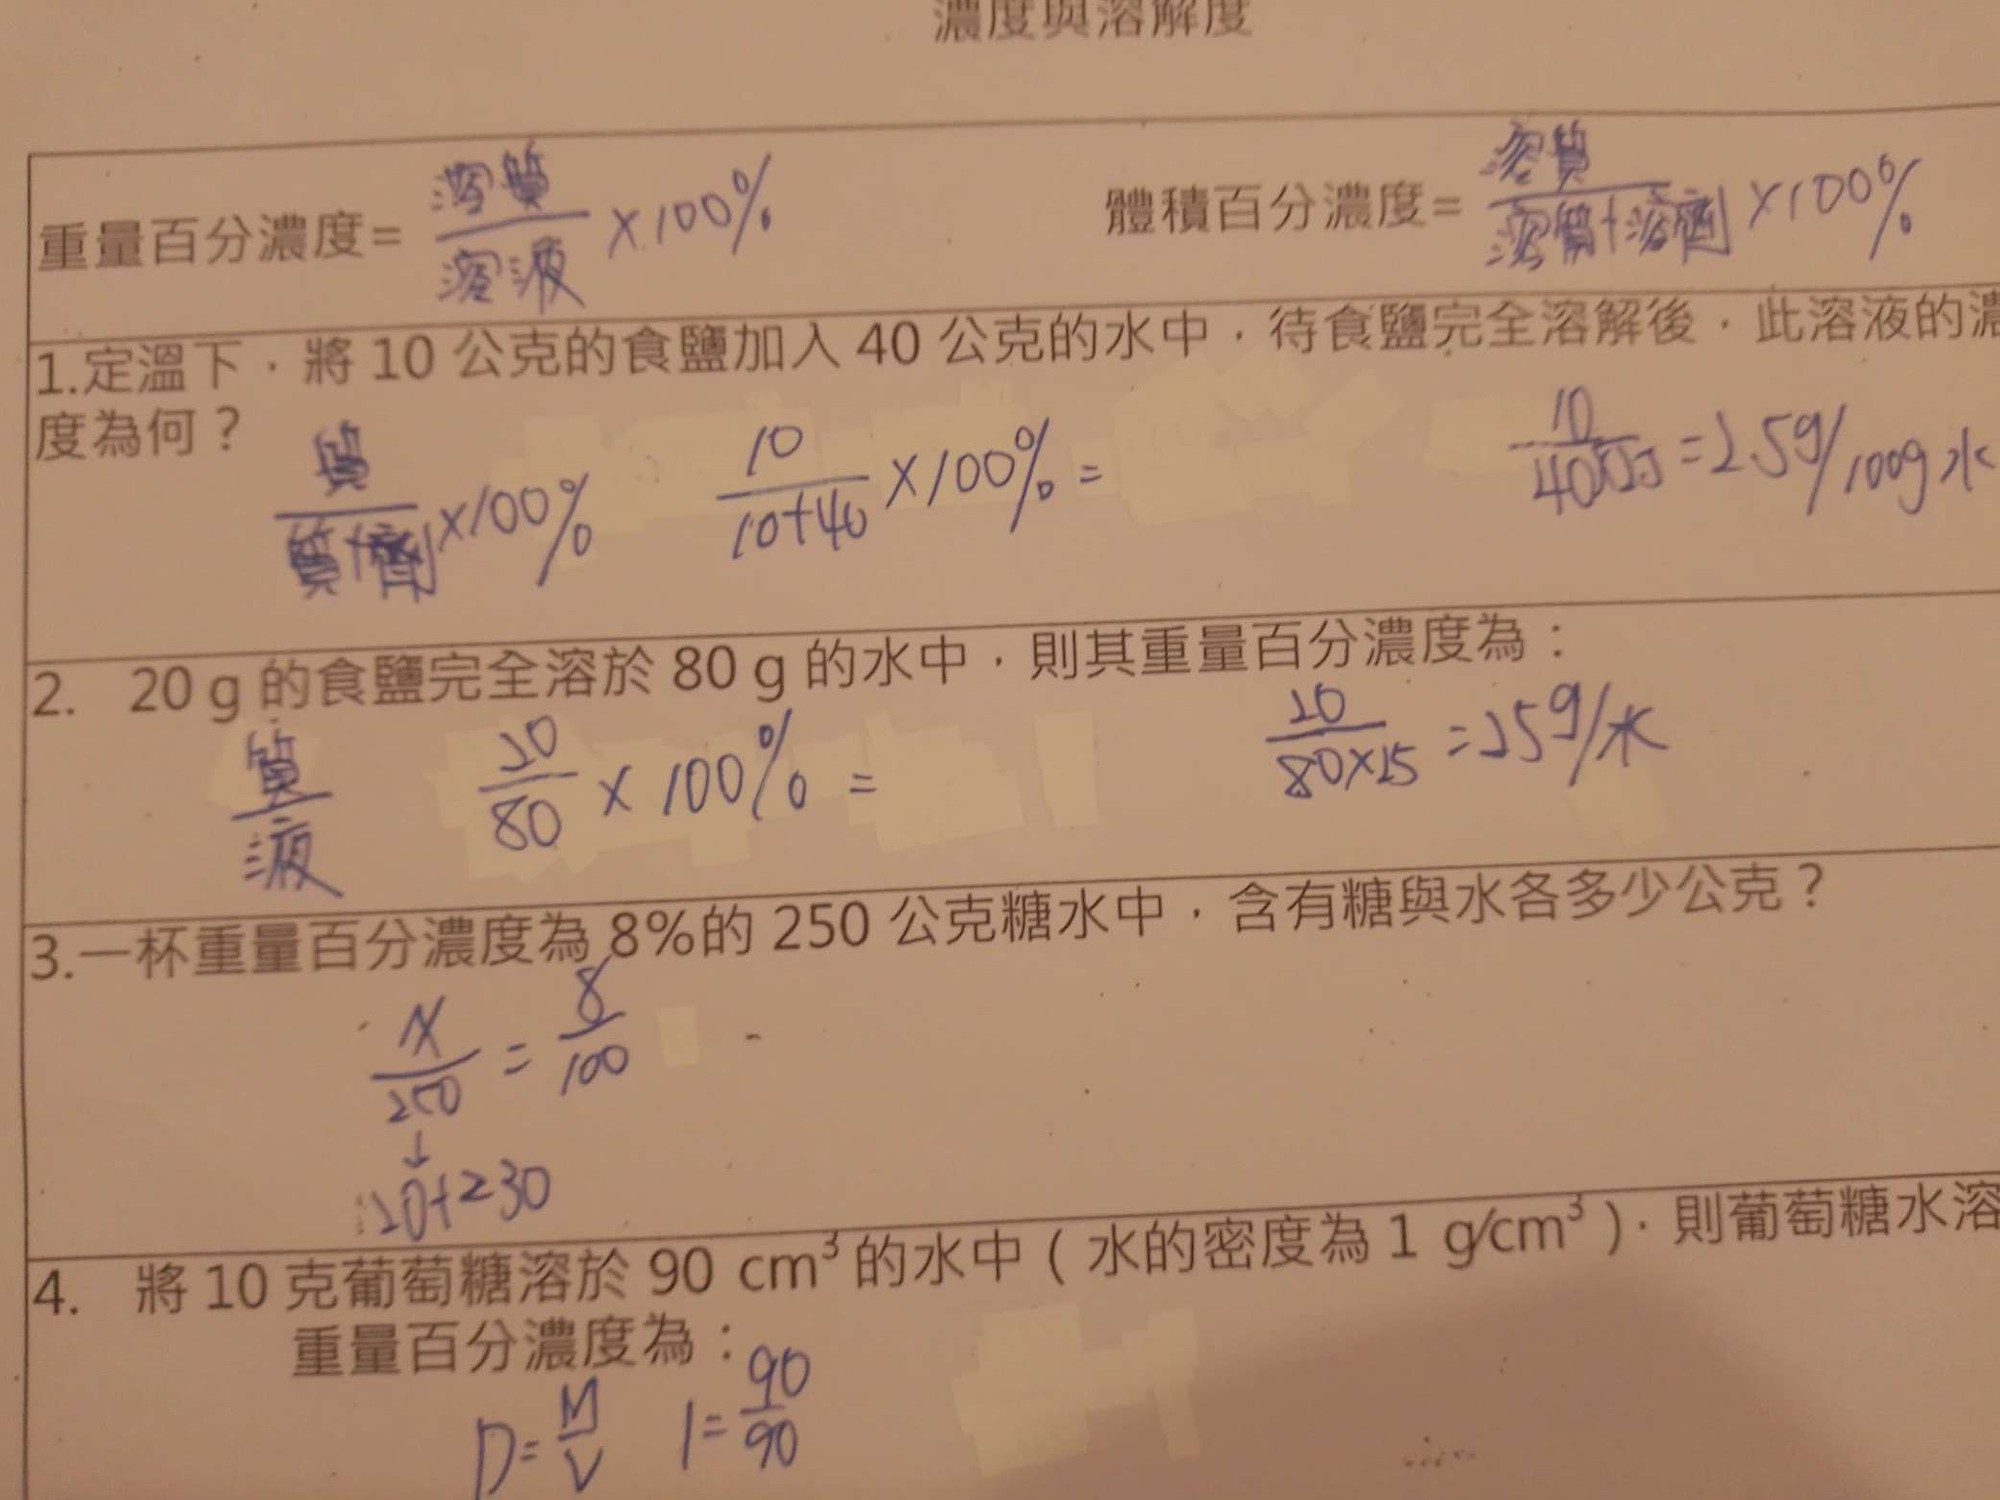 濃度與溶解度
重量百分濃度= 溶質/溶液 ×100%　體積百分濃度= 溶質/溶質+溶劑 ×100%
1.定溫下，將 10 公克的食鹽加入 40 公克的水中，待食鹽完全溶解後，此溶液的濃
度為何？
質/質+劑 ×100%　10/10+40 ×100% =　10/40 =25g/100g水
2. 20 g 的食鹽完全溶於 80 g 的水中，則其重量百分濃度為：
質/液　20/80 × 100% =　20/80×25 =25g/水
3.一杯重量百分濃度為 8%的 250 公克糖水中，含有糖與水各多少公克？
X/250 = 8/100
↓
20+230
4. 將 10 克葡萄糖溶於 90 cm³ 的水中（水的密度為 1 g/cm³），則葡萄糖水溶
重量百分濃度為：
D=M/V　1=90/90